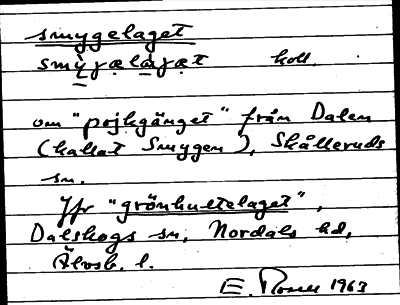 smygelaget
smỳgælàgæt koll.
om "pojkgänget" från Dalen
(kallat Smygen), Skålleruds
sn.
Jfr "grönhultelaget",
Dalskogs sn, Nordals hd,
Älvsb. l.
E. 1963